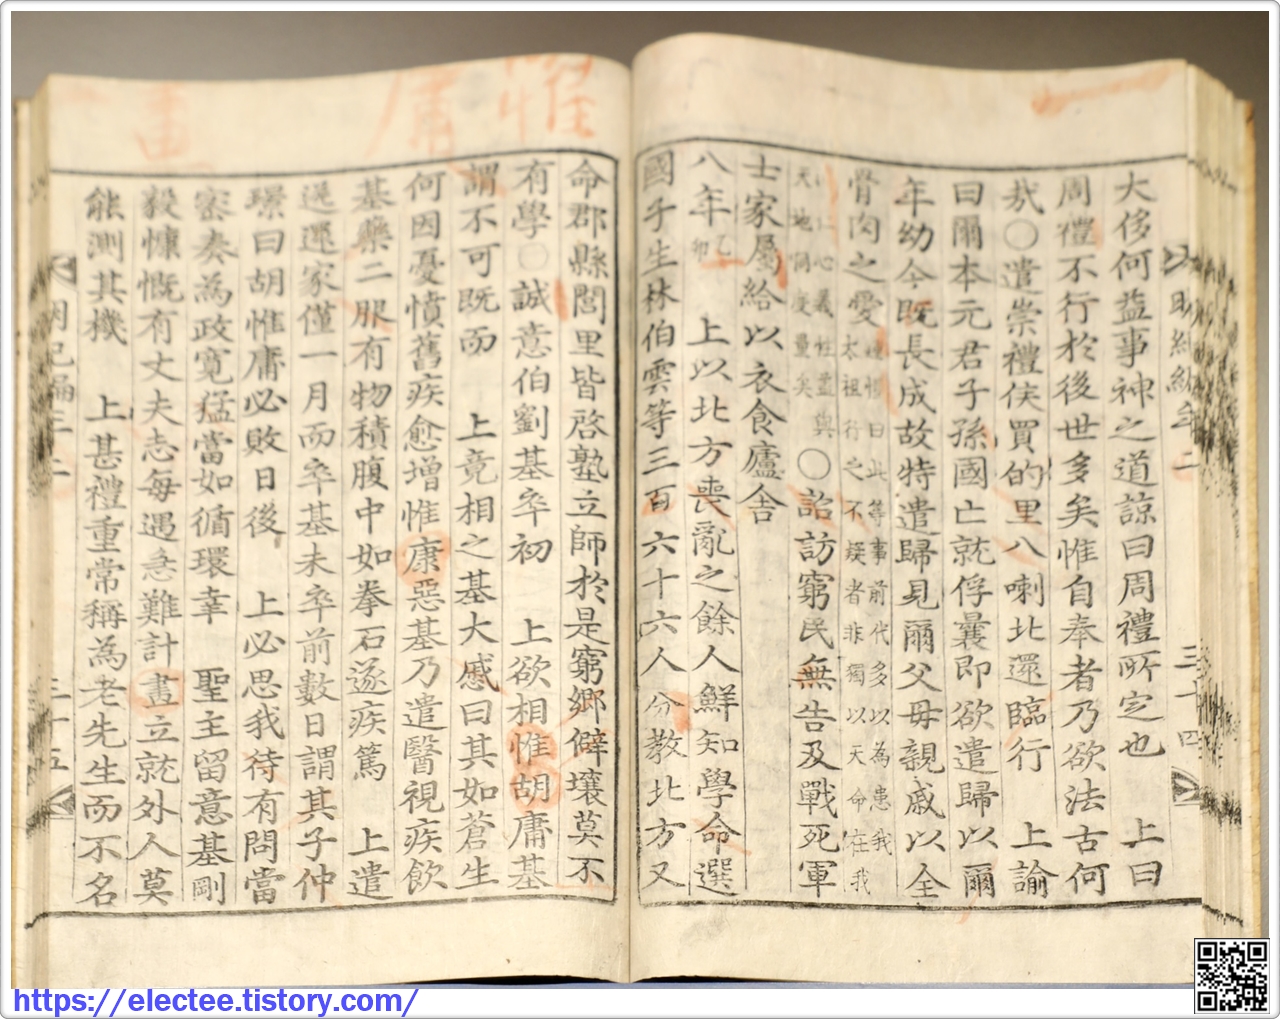 大侈何益事神之道諒曰周禮所定也　上曰
周禮不行於後世多矣惟自奉者乃欲法古何
㢤○遣崇禮侯買的里八喇北還臨行　上諭
曰爾本元君子孫國亡就俘曩即欲遣歸以爾
年幼今既長成故特遣歸見爾父母親戚以全
骨肉之愛
曰此等事前代多以為患我
太祖行之不疑者非獨以天命在我
心義性盖與
天地同度量矣
○詔訪窮民無告及戰死軍
士家屬給以衣食廬舍
八年乙卯　上以北方喪亂之餘人鮮知學命選
國子生林伯雲等三百六十六人分教北方又
命郡縣閭里皆啓塾立師於是窮鄉僻壤莫不
有學○誠意伯劉基卒初　上欲相惟胡庸基
謂不可既而　上竟相之基大慼曰其如蒼生
何因憂憤舊疾愈增惟康惡基乃遣醫視疾飲
基藥二服有物積腹中如拳石遂疾篤　上遣
送還家僅一月而卒基未卒前數日謂其子仲
璟曰胡惟庸必敗日後　上必思我待有問當
密奏為政寬猛當如循環幸　聖主留意基剛
毅慷慨有丈夫志每遇急難計畫立就外人莫
能測其機　上甚禮重常稱為老先生而不名
三十四
三十五
惟
庸
畫
https://electee.tistory.com/